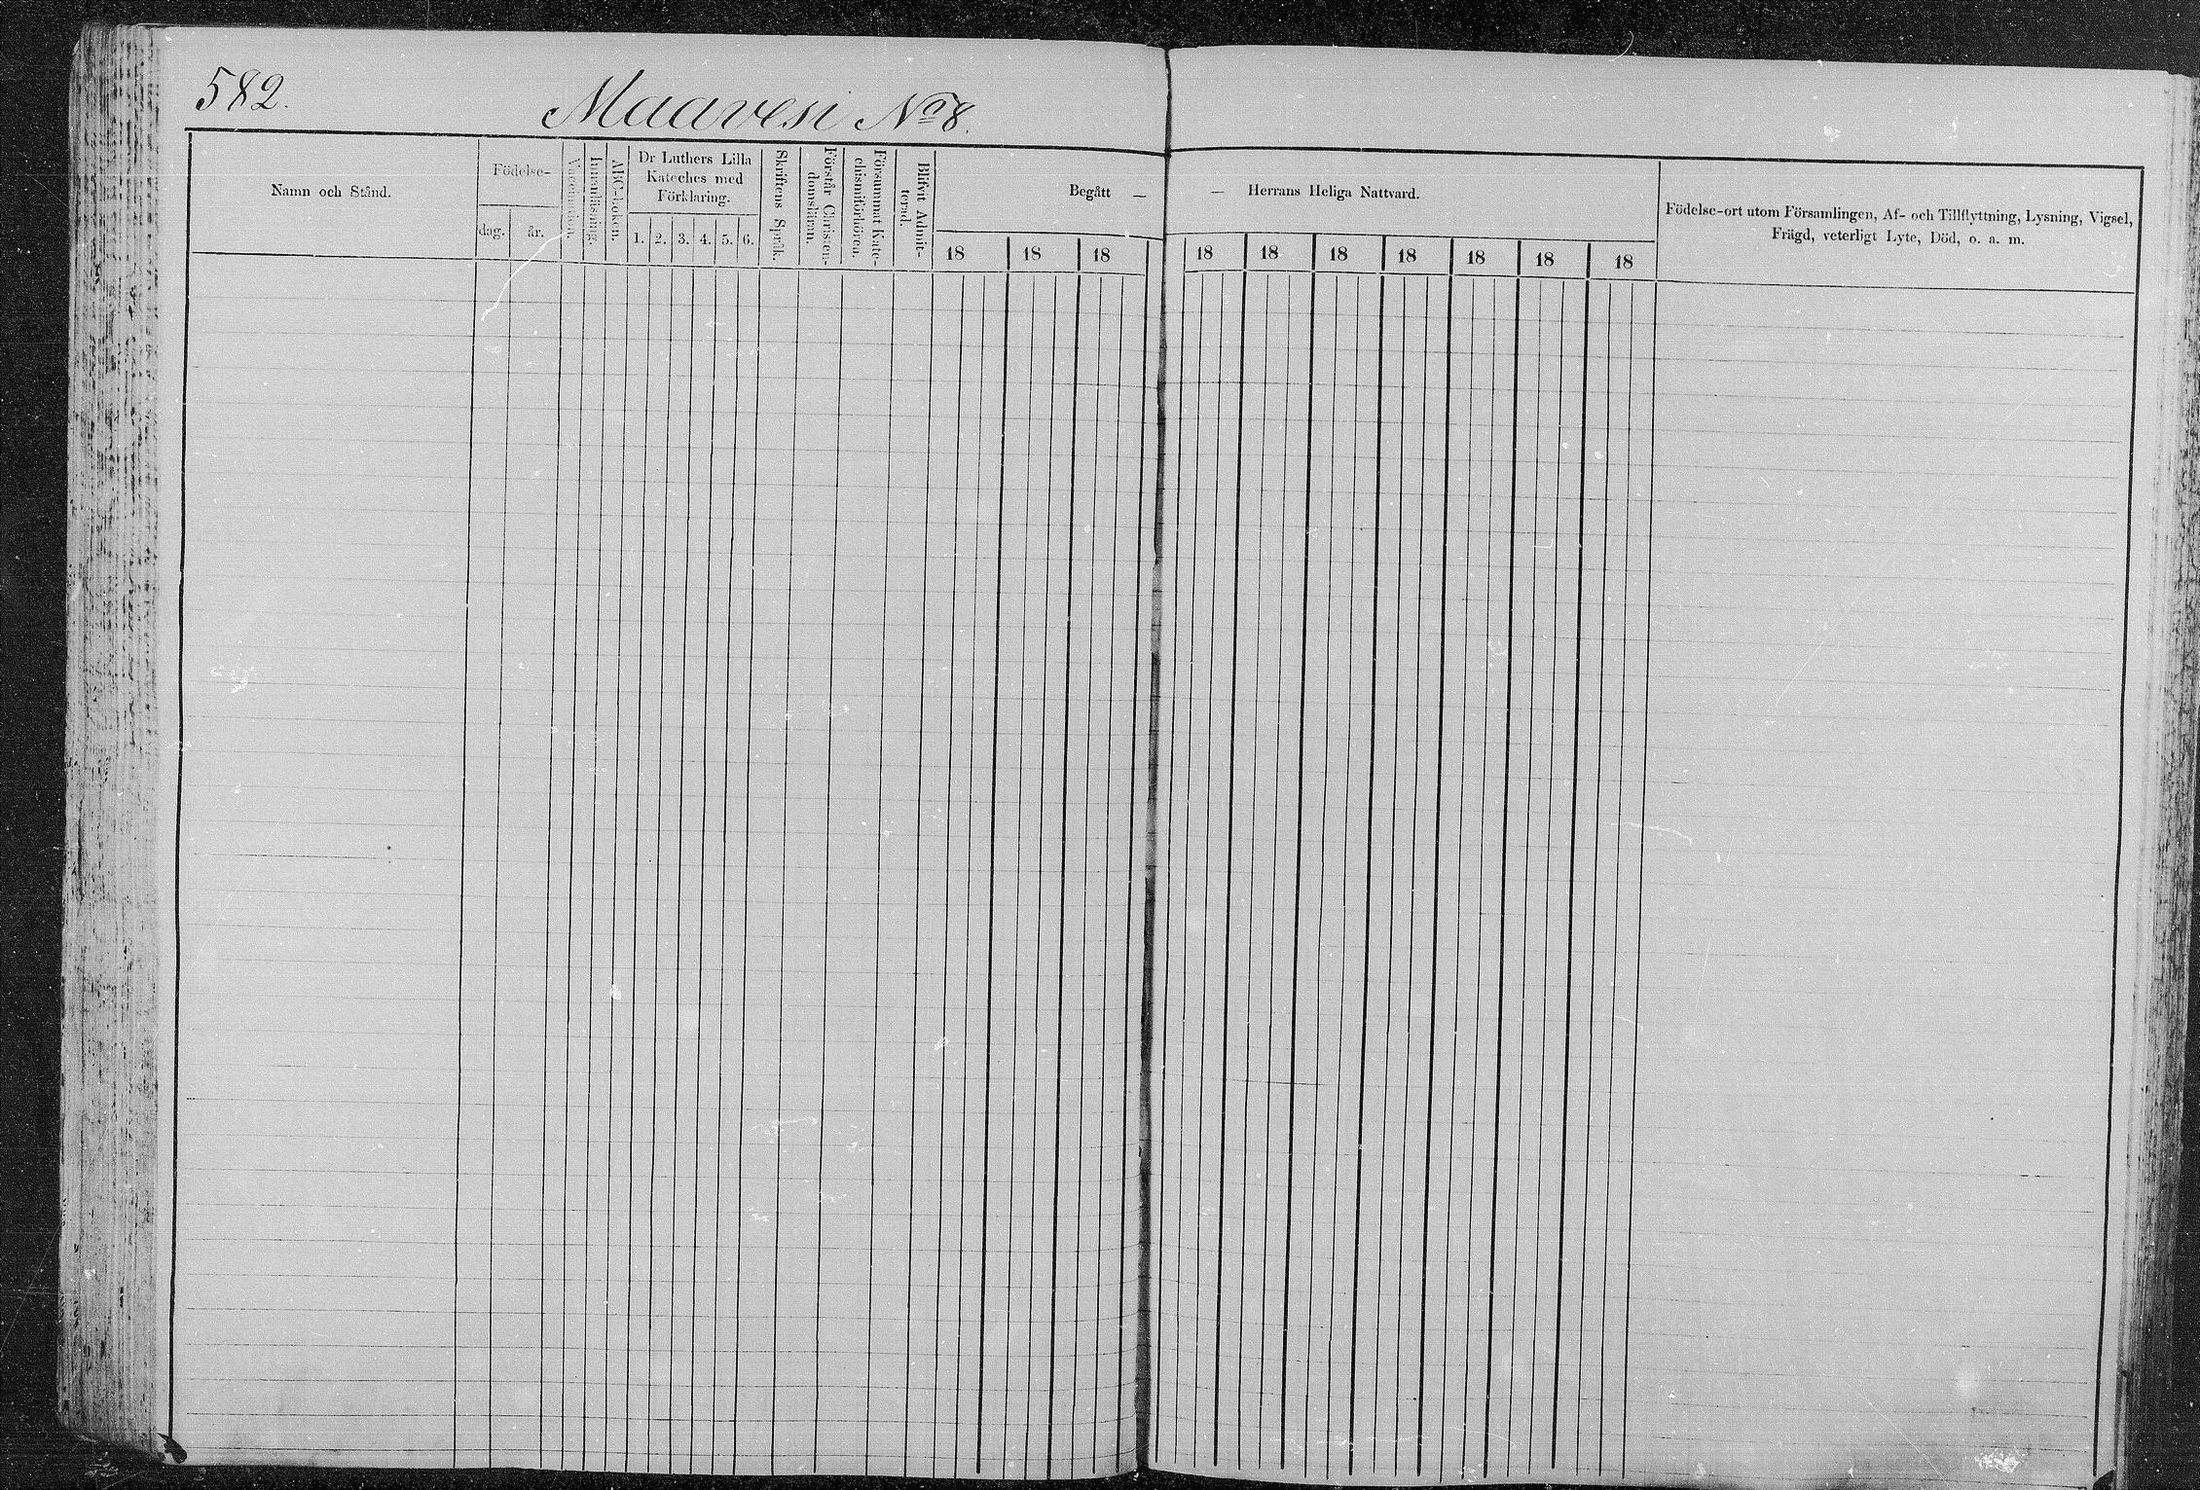 582.
Maavesi No 8.
Namn och Stånd.
Födelse-
dag.
år.
Vaccination.
Innanläsning.
ABC-boken.
Dr Luthers Lilla
Kateches med
Förklaring.
1. 2. 3. 4. 5. 6.
Skriftens Språk.
Förstår Christen-
domsläran.
Försummat Kate-
chismiförhören.
Blifvit Admit-
terad.
Begått —
18 18 18
— Herrans Heliga Nattvard.
18 18 18 18 18 18 18
Födelse-ort utom Församlingen, Af- och Tillflyttning, Lysning, Vigsel,
Frägd, veterligt Lyte, Död, o. a. m.